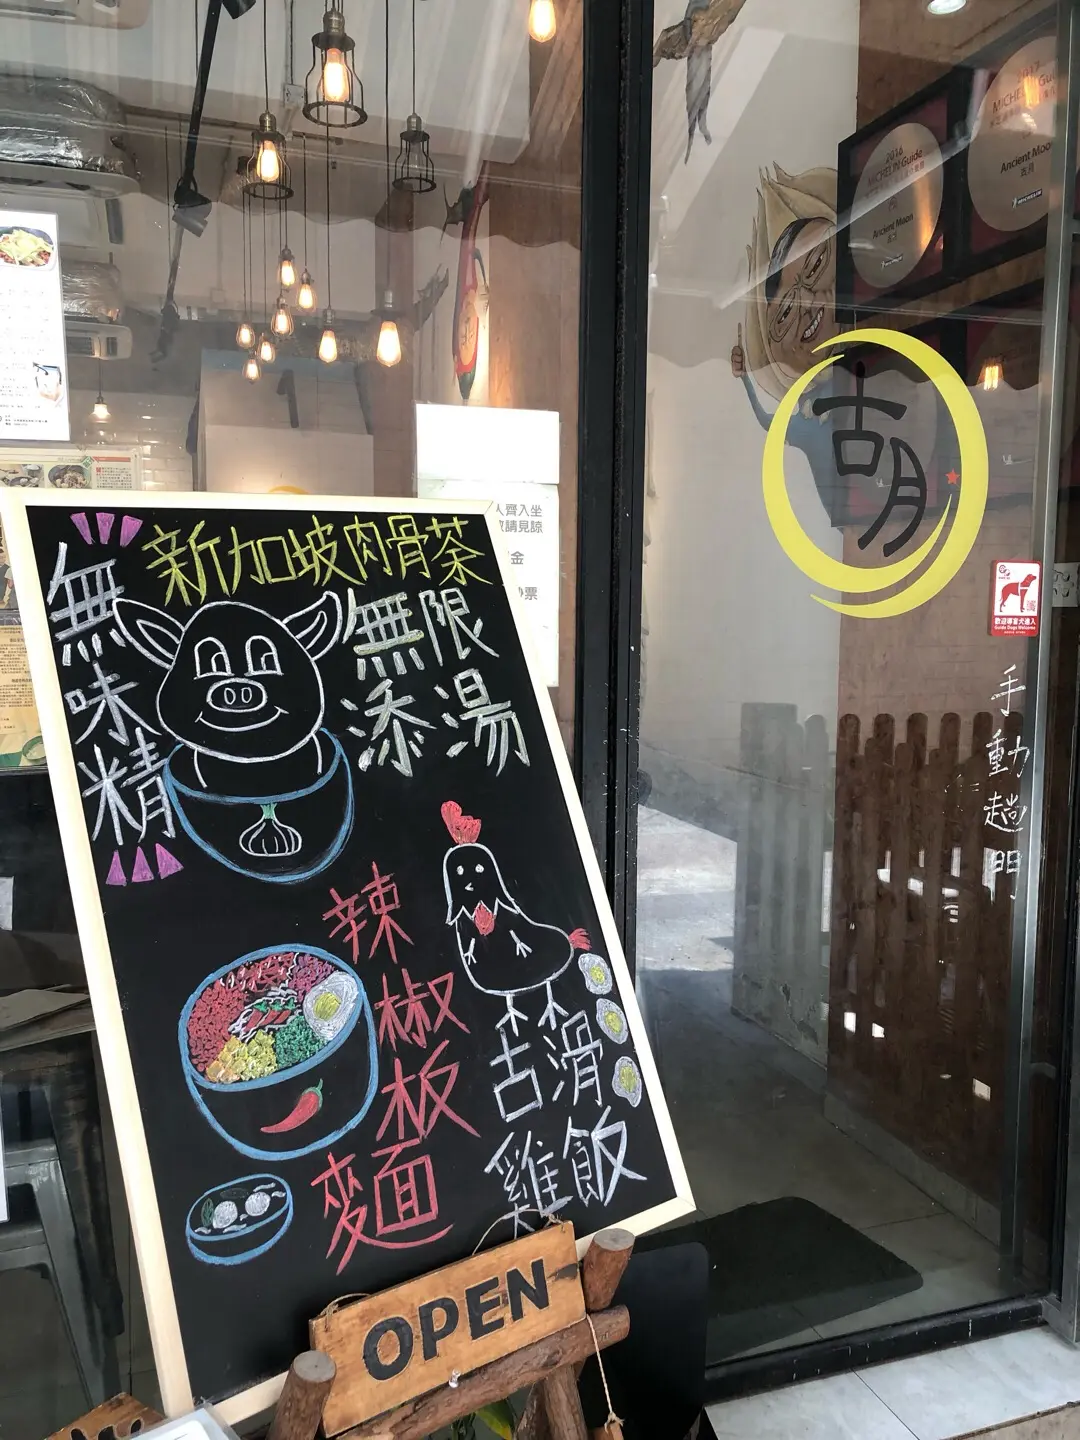 新加坡肉骨茶
無味精
無限
添湯
辣椒板麵
古滑
雞飯
OPEN
人齊入坐
敬請見諒
金
鈔票
古月
歡迎導盲犬進入
Guide Dogs Welcome
手動趟門
2016
MICHELIN Guide
Ancient Moon
古月
2017
MICHELIN Gui
Ancient Moon
古月